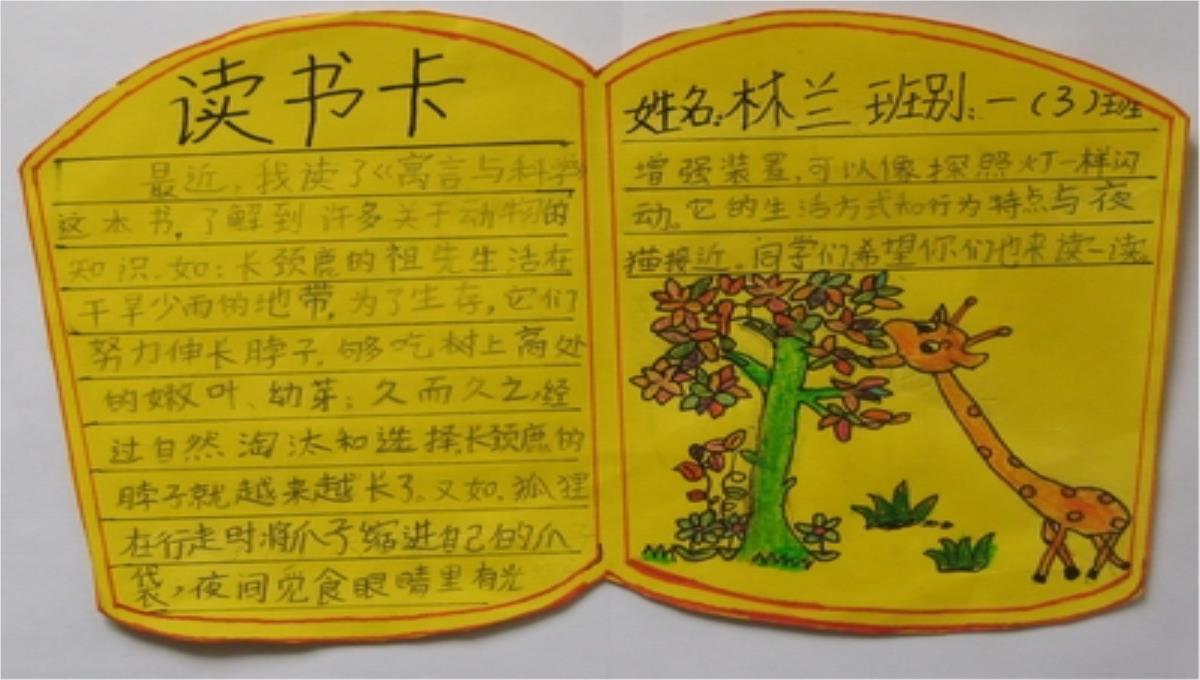 读书卡
最近,我读了《寓言与科学
这本书,了解到许多关于动物的
知识,如:长颈鹿的祖先生活在
干旱少雨的地带,为了生存,它们
努力伸长脖子,够吃树上高处
的嫩叶、幼芽;久而久之,经
过自然淘汰和选择长颈鹿的
脖子就越来越长了。又如,狐狸
在行走时将爪子缩进自己的爪
袋,夜间觅食眼睛里有光
姓名:林兰 班别:一(3)班
增强装置,可以像探照灯一样闪
动。它的生活方式和行为特点与夜
猫接近。同学们希望你们也来读一读。